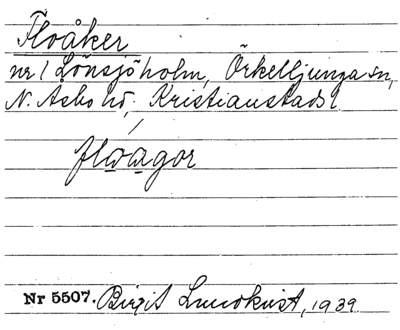 Floåker
nr 1 Lönsjöholm, Örkelljunga sn,
N. Åsbo hd, Kristianstads l.
floagor
Nr 5507. Birgit Lundkvist, 1939